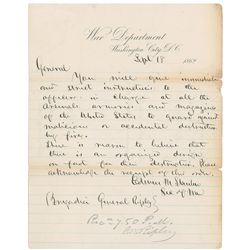 War Department
Washington City, D.C.
Sept 18 186
General
You will give immediate
and strict instructions to the
officers in charge of all the
arsenals armories and magazines
of the United States to guard against
malicious or accidental destruction
by fire.
There is reason to believe that
there is an organized design
on foot for their destruction. Please
acknowledge the receipt of this order
Edwin M Stanton
Sec of War
Brigadier General Ripley
Rec 7.50 P.M.
Ripley